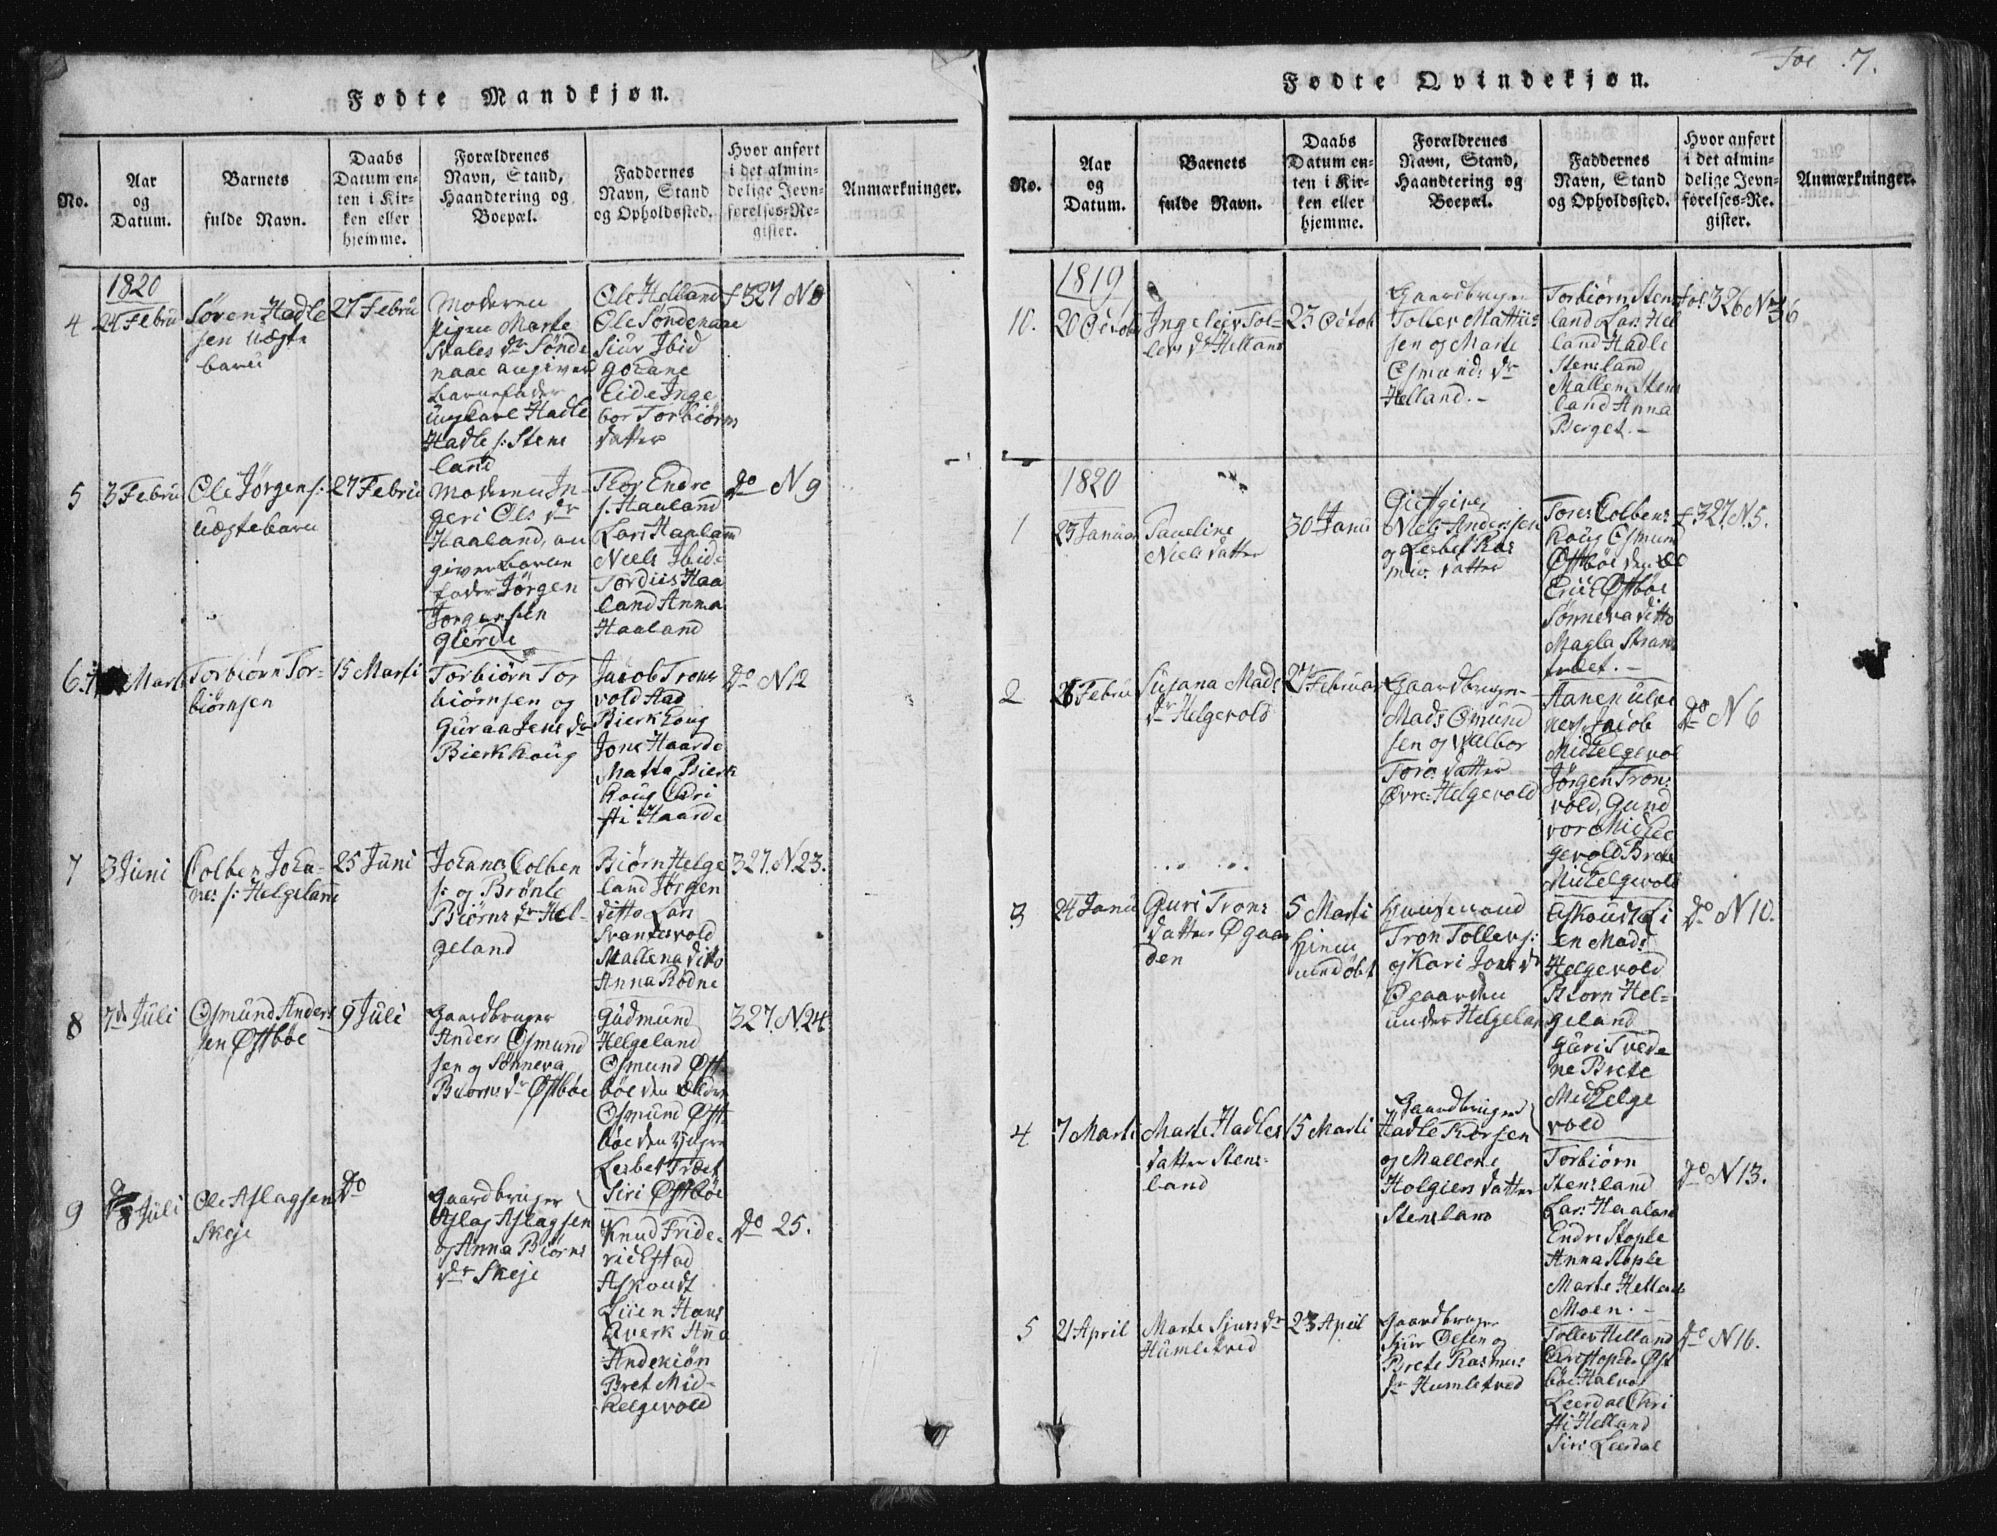 Fødte Mandkjøn.
No.
Aar
og
Datum.
Barnets
fulde Navn.
Daabs
Datum en-
ten i Kir-
ken eller
hjemme.
Forældrenes
Navn, Stand,
Haandtering og
Boepæl.
Faddernes
Navn, Stand
og Opholdssted.
Hvor anført
i det almin-
delige Jevn-
førelses-Re-
gister.
Anmærkninger.
1820
4
24 Febru
Søren Hadle
sen uægte
barn
27 Febru
Moderen
Pigen Marte
Skales dr Sønde
naae angiver
Barnefader
ungkarl Hadle
Hadle s: Stens
land
Ole Helland
Ole Søndenaae
Siur Ibid
Gotzane
Eide Inge
bor Torbiørns
datter
f 327 N 8
5
3 Febru
Ole Jørgens:
uægtebarn
27 Febru
Moderen In-
geri Ols dr
Haaland, an
giver Barne
fader Jørgen
Jørgensen
Gierde
Thor Endre
s: Haaland
Lars Haaland
Niels Ibid:
Tordiis Haa
land Anna
Haaland
do N 9
6
Marti
Torbiørn Tor-
biørnsen
15 Marti
Torbiørn Tor
biørnsen og
Guraa Jens dr
Bierkhoug
Jacob Trons
vold Aad
Bierkhoug
Jone Haarde
Matta Bierk
houg Chri
sti Haarde
do N 12
7
3 Juni
Colben Joha-
nes s: Helgeland
25 Juni
Johanes Colben
s: og Brønle
Biørns dr Hel-
geland
Biørn Helge
land Jørgen
ditto Lars
Svantesvold
Mallena ditto
Anna Rødne
327. N. 23.
8
7de Juli
Osmund Anders
sen Østbøe
9 Juli
Gaardbruger
Anders Osmund
sen og Sønneva
Biørns dr Østbøe
Gudmund
Helgeland
Osmund Øst
bøe den ældre
Osmund Øst
bøe den yngre
Lisbet Træet
Siri Østbøe
327. N. 24.
9
8 Juli
Ole Aslagsen
Skeje
do
Gaardbruger
Aslag Aslagsen
og Anna Biørns
dr Skeje
Knud Fride-
richstad
Askoudt
Liien Hans
Kverk Anna
Andekiøn
Bret Mid-
helgevold
do 25.
Fødte Qvindekjøn.
Fol 7.
No.
Aar
og
Datum.
Barnets
fulde Navn.
Daabs
Datum en-
ten i Kir-
ken eller
hjemme.
Forældrenes
Navn, Stand,
Haandtering og
Boepæl.
Faddernes
Navn, Stand
og Opholdssted.
Hvor anført
i det almin-
delige Jevn-
førelses-Re-
gister.
Anmærkninger.
1819
10.
20 Octob
Ingeleiv Tol-
levs dr Helland
23 Octob
Gaardbruger
Tollev Mathi-
sen og Marte
Osmunds dr
Helland. -
Torbiørn Stens
land Lars Hel
land Hadle
Stensland
Mallene Stens
land Anna
Berget. -
fol: 326 N 36
1820
1
23 Januar
Pauline
Niels datter
30 Janu
Giestgiver
Niels Andersen
og Lisbet Ras
mus datter
Tores Colbens
houg Osmund
Østbøe den æl
Erik Østbøe
Sønneva ditto
Magla Strand
f 327. N. 5.
2
26 Febru
Susana Mads
dr Helgevold
27 Februar
Gaardbruger
Mads Osmund
sen og Valbor
Tores datter
Øvre Helgevold
Jacob
Midhelgevol
Jørgen Trons
vold, Gund
vor Midhel
gevold Brete
Midhelgevold
do N 6
3
24 Janu
Guri Trons
datter Øgaar
den
5 Marti
hjemmedøbt
Huusmand
Tron Tollevs:
og Kari Jons dr
Øgaarden
under Helgeland
Askoudt Li
en Mads
Helgevold
Biørn Hel-
geland
Guri Tvede
ne Brete
Midhelge
vold
do N 10.
4
7 Marti
Marte Hadles
datter Stens-
land
15 Marti
Gaardbruger
Hadle Thorsen
og Mallene
Holgiers datter
Stensland
Torbiørn
Stensland
Lars Haaland
Endre Stople
Anna Stople
Marte Helland
Moen. -
do N 13.
5
21 April
Marte Sjurs dr
Humletved
23 April
Gaardbruger
Sjur Olsen og
Brete Rasmus
dr Humletved
Tollev Helland
Christopher Øst
bøe Halvor
Leerdal Chri
sti Helland
Siri Leerdal
do N 16.